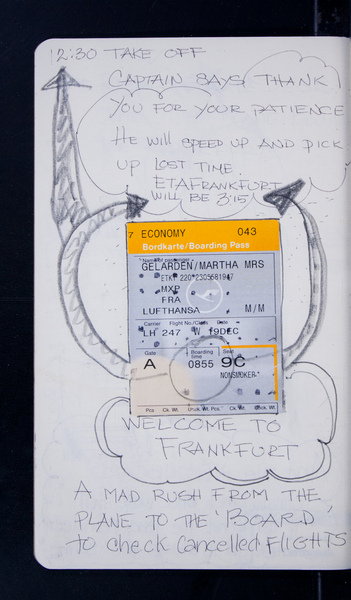 12:30 TAKE OFF
CAPTAIN SAYS, THANK
YOU FOR YOUR PATIENCE
He will SPEED UP AND PICK
UP LOST TIME.
ETA FRANKFURT
WILL BE 3:15
7 ECONOMY 043
Bordkarte/Boarding Pass
Name of passenger
GELARDEN/MARTHA MRS
MXP
FRA
LUFTHANSA M/M
Carrier Flight No./Class Date
LH 247 W 19DEC
Gate Boarding time Seat
A 0855 9C
NONSMOKER*
Pcs. Ck. Wt. Unck. Wt. Pcs. Ck. Wt. Unck. Wt.
WELCOME TO
FRANKFURT
A MAD RUSH FROM THE
PLANE TO THE 'BOARD'
to check cancelled FLIGHTS